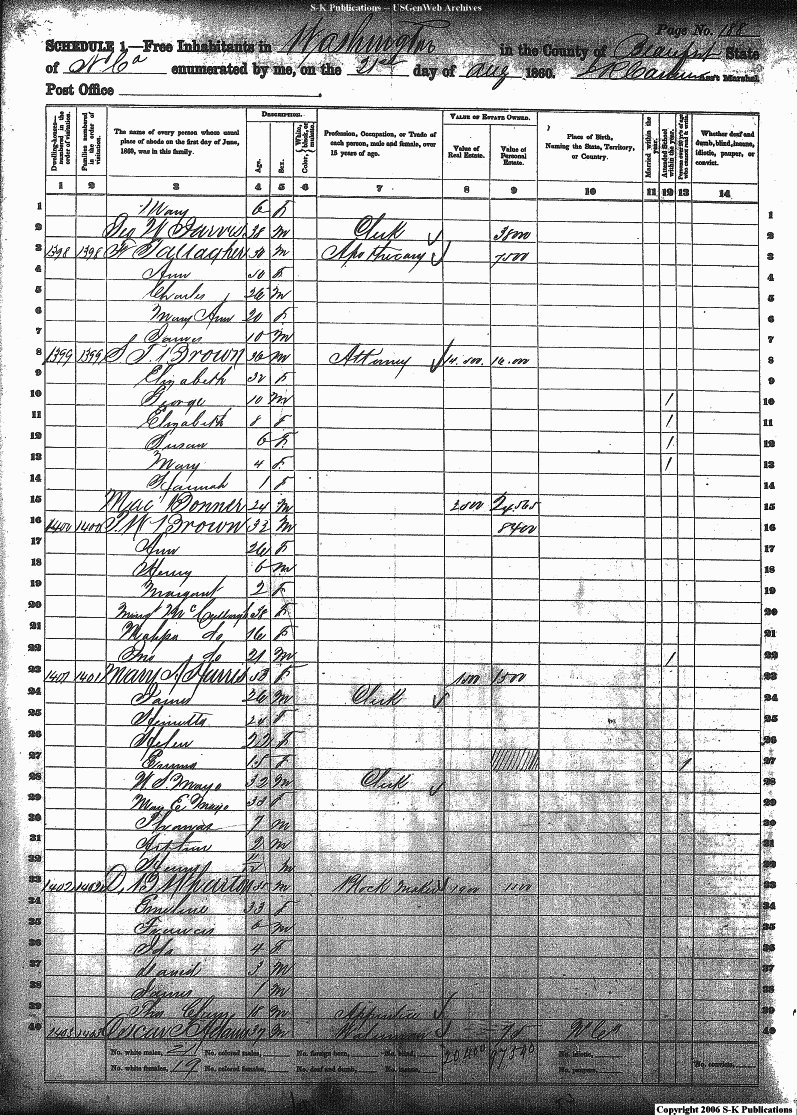 S-K Publications – USGenWeb Archives
Page No. 188
SCHEDULE 1.—Free Inhabitants in Washington in the County of Beaufort State
of N Ca enumerated by me, on the 21st day of Aug 1860. Ass't Marshal.
Post Office
DESCRIPTION. VALUE OF ESTATE OWNED.
Dwelling-houses—numbered in the order of visitation. Families numbered in the order of visitation. The name of every person whose usual place of abode on the first day of June, 1860, was in this family. Age. Sex. Color, White, black, or mulatto. Profession, Occupation, or Trade of each person, male and female, over 15 years of age. Value of Real Estate. Value of Personal Estate. Place of Birth, Naming the State, Territory, or Country. Married within the year. Attended School within the year. Persons over 20 y'rs of age who cannot read & write. Whether deaf and dumb, blind, insane, idiotic, pauper, or convict.
1 2 3 4 5 6 7 8 9 10 11 12 13 14
1 Mary 6 F 1
2 Geo W Jarvis 38 M Clerk 3800 2
3 1398 1398 Gallagher 50 M Apothecary 7500 3
4 Ann 50 F 4
5 Charles 26 M 5
6 Mary Ann 20 F 6
7 James 10 M 7
8 1399 1399 S T Brown 36 M Attorney 14.500 16.000 8
9 Elizabeth 32 F 9
10 George 10 M / 10
11 Elizabeth 8 F / 11
12 Susan 6 F / 12
13 Mary 4 F / 13
14 Hannah 1 F 14
15 Mac Bonner 24 M 2500 24565 15
16 1400 1400 Brown 33 M 8400 16
17 Ann 26 F 17
18 Henry 6 M 18
19 Margaret 2 F 19
20 Mc Cullough 38 F 20
21 Mappa do 16 F 21
22 do 21 M / 22
23 1401 1401 Mary A Harris 53 F 1500 1500 23
24 James 26 M Clerk 24
25 Henrietta 24 F 25
26 Helen 22 F 26
27 Emma 15 F / 27
28 W S Mayo 32 M Clerk 28
29 Mary E Mayo 33 F 29
30 Thomas 7 M 30
31 2 M 31
32 Henry M 32
33 1402 1402 D B Wharton 35 M Block Maker 33
34 Emeline 33 F 34
35 Francis 6 M 35
36 Ida 4 F 36
37 David 3 M 37
38 James 1 M 38
39 Apprentice 39
40 1403 1403 Oscar F Adams 37 M Waterman N Ca 40
No. white males, 21 No. colored males, No. foreign born, No. blind, No. idiotic,
No. white females, 19 No. colored females, No. deaf and dumb, No. insane, No. paupers, No. convicts,
Copyright 2006 S-K Publications